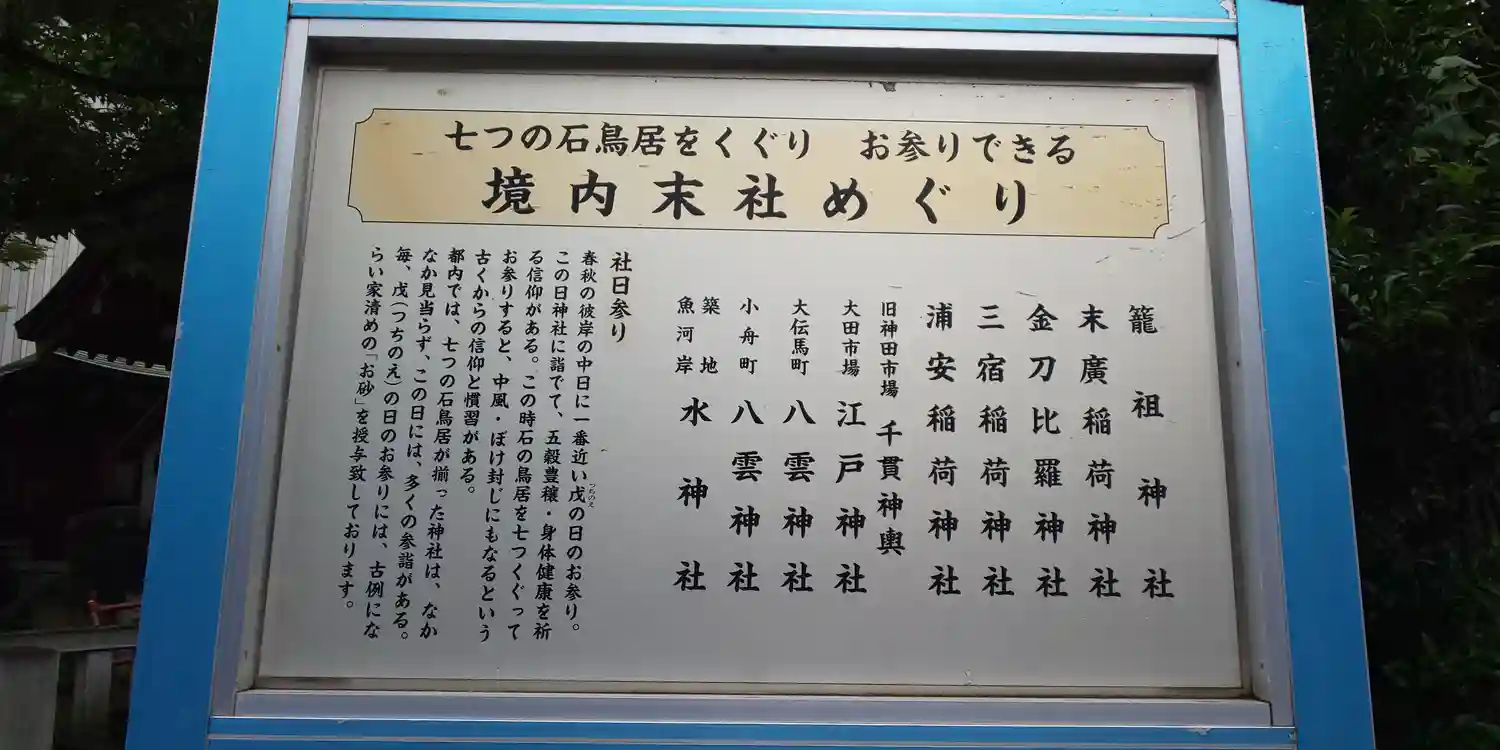 七つの石鳥居をくぐり　お参りできる
境内末社めぐり
籠祖神社
末廣稲荷神社
金刀比羅神社
三宿稲荷神社
浦安稲荷神社
旧神田市場 千貫神輿
大田市場 江戸神社
大伝馬町 八雲神社
小舟町 八雲神社
築地
魚河岸
水神社
社日参り
春秋の彼岸の中日に一番近い戊の日のお参り。
つちのえ
この日神社に詣でて、五穀豊穣・身体健康を祈
る信仰がある。この時石の鳥居を七つくぐって
お参りすると、中風・ぼけ封じにもなるという
古くからの信仰と慣習がある。
都内では、七つの石鳥居が揃った神社は、なか
なか見当らず、この日には、多くの参詣がある。
毎、戊（つちのえ）の日のお参りには、古例にな
らい家清めの「お砂」を授与致しております。